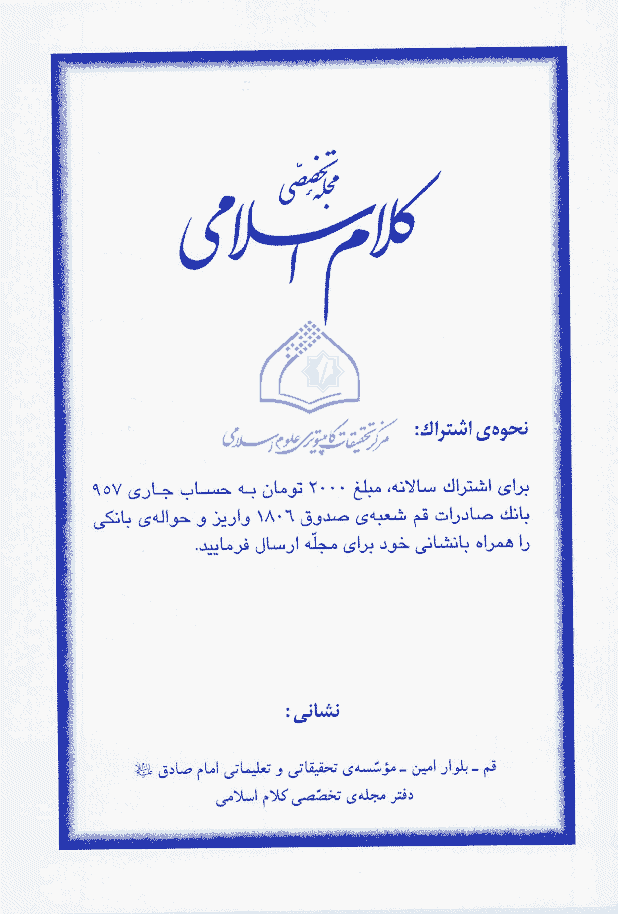 مجلهٔ تخصّصی
کلام اسلامی
مرکز تحقیقات کامپیوتری علوم اسلامی
نحوه‌ی اشتراك:
برای اشتراك سالانه، مبلغ ۲۰۰۰ تومان به حساب جاری ۹۵۷
بانك صادرات قم شعبه‌ی صدوق ۱۸۰۶ واریز و حواله‌ی بانکی
را همراه بانشانی خود برای مجلّه ارسال فرمایید.
نشانی:
قم ـ بلوار امین ـ مؤسّسه‌ی تحقیقاتی و تعلیماتی امام صادق
دفتر مجله‌ی تخصّصی کلام اسلامی